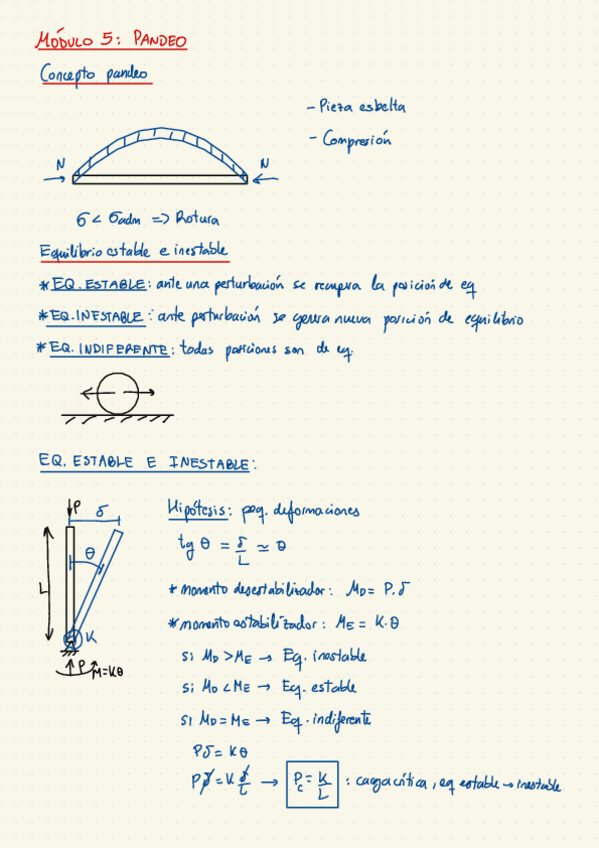 MÓDULO 5: PANDEO
Concepto pandeo
- Pieza esbelta
- Compresión
N
N
σ < σadm => Rotura
Equilibrio estable e inestable
* EQ. ESTABLE: ante una perturbación se recupera la posición de eq
* EQ. INESTABLE: ante perturbación se genera nueva posición de equilibrio
* EQ. INDIFERENTE: todas posiciones son de eq.
EQ. ESTABLE E INESTABLE:
P
δ
θ
L
K
P M=Kθ
Hipótesis: peq. deformaciones
tg θ = δ/L ≃ θ
* momento desestabilizador: MD = P.δ
* momento estabilizador: ME = K.θ
si MD > ME → Eq. inestable
si MD < ME → Eq. estable
si MD = ME → Eq. indiferente
Pδ = Kθ
Pδ = K δ/L → Pc = K/L : carga crítica, eq estable → inestable